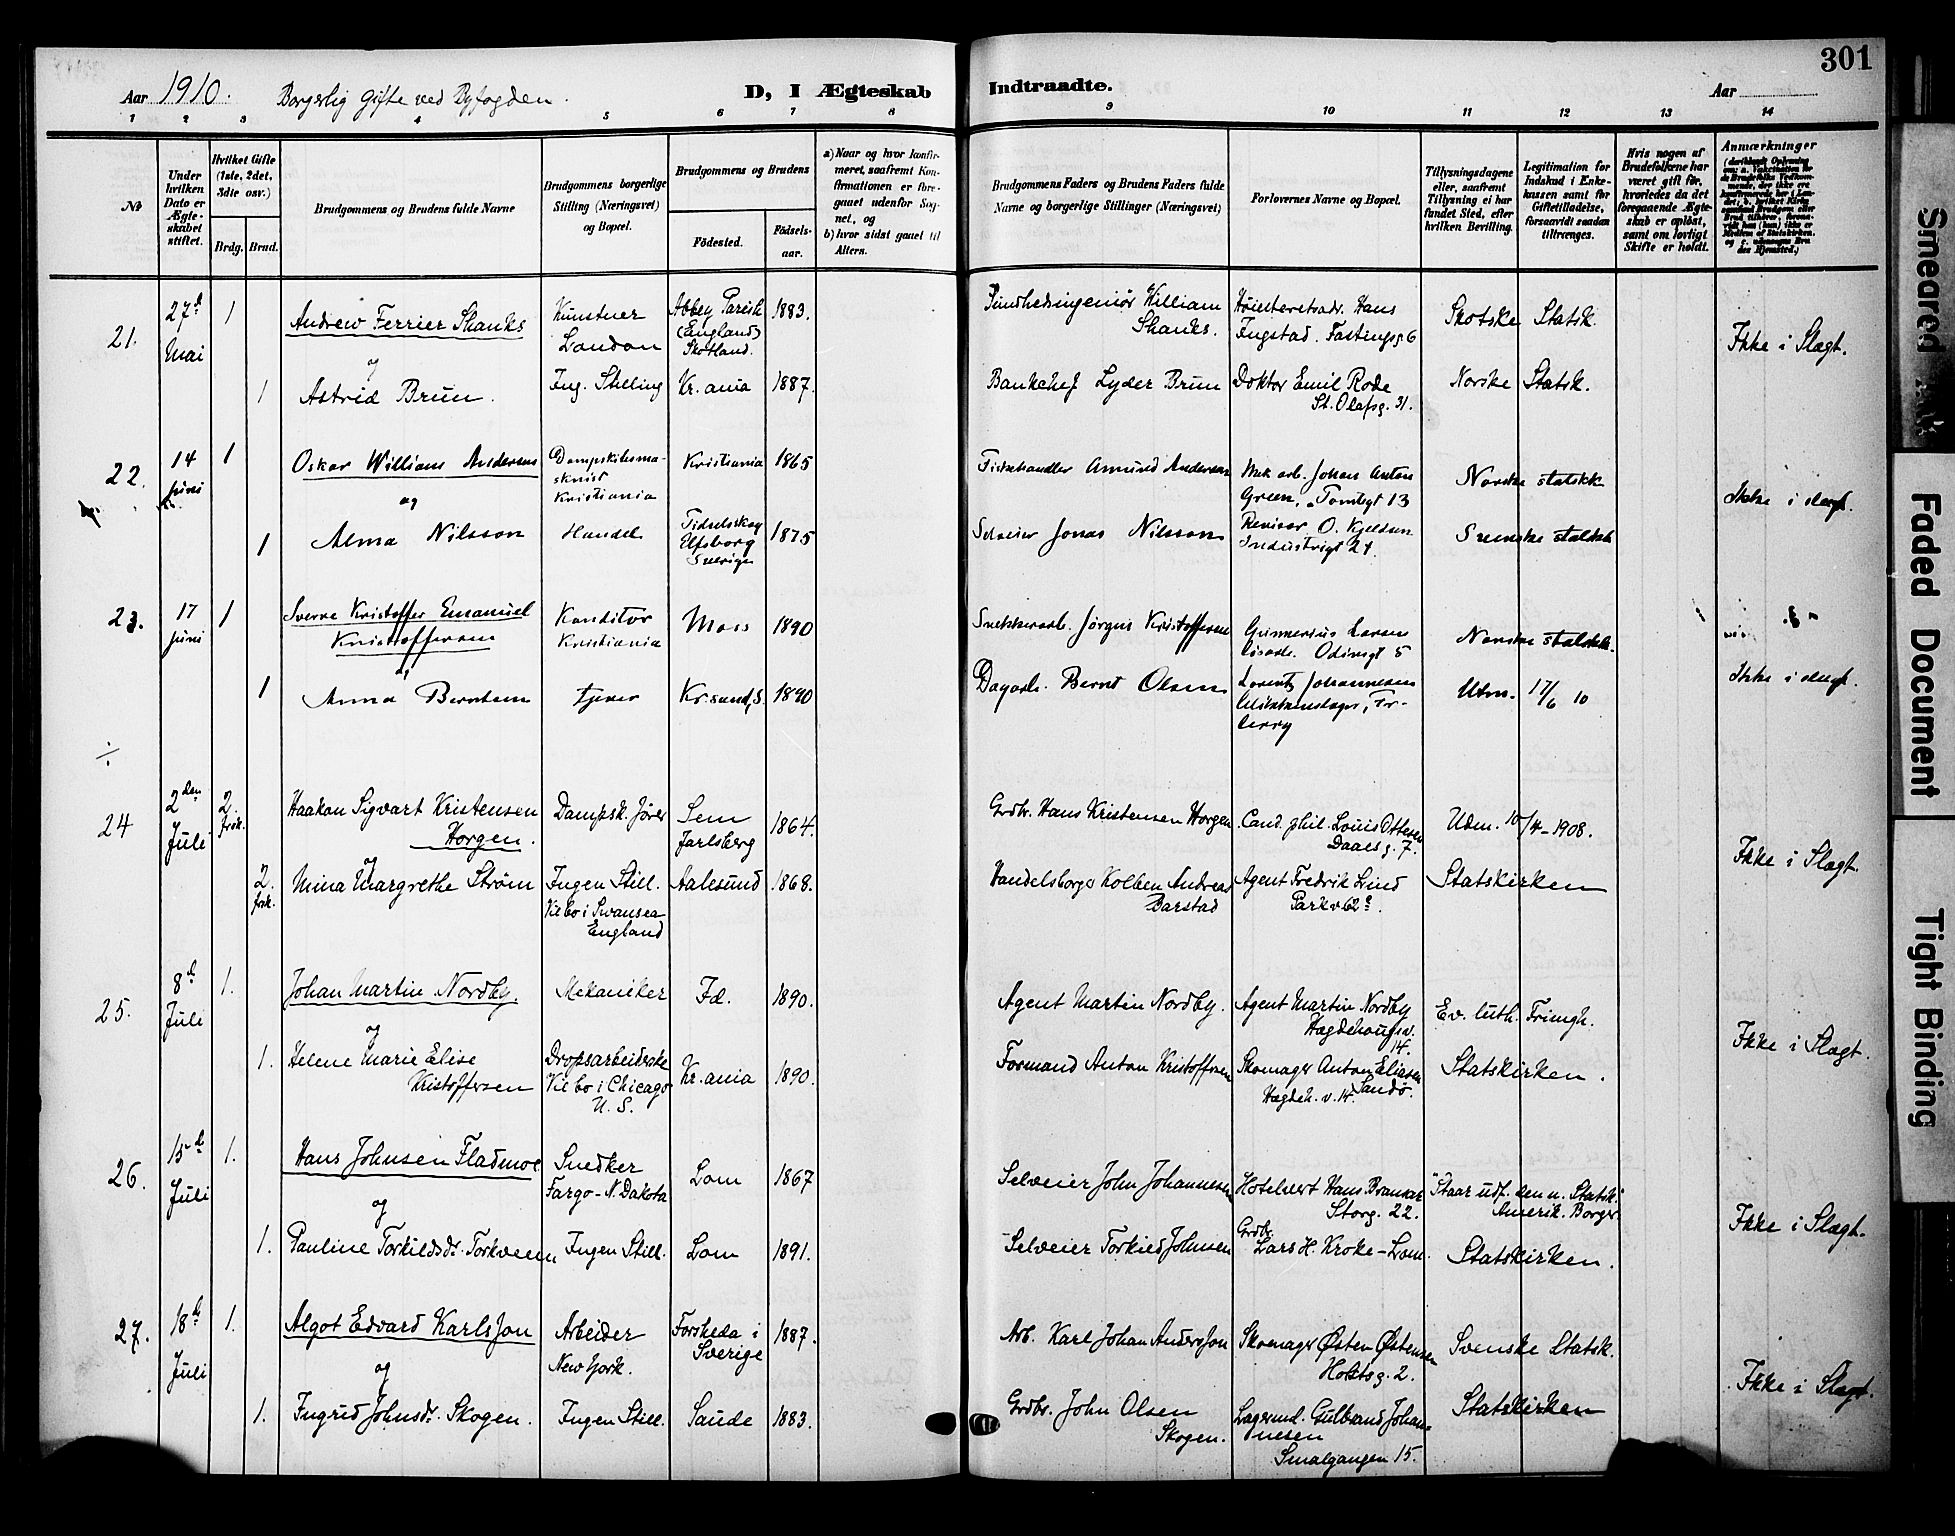 301
Aar 1910. Borgerlig Gifte ved Byfogden. D, I Ægteskab Indtraadte. Aar
1 2 3 4 5 6 7 8 9 10 11 12 13 14
No
Under hvilken Dato er Ægteskabet stiftet.
Hvilket Gifte (1ste, 2det, 3die osv.)
Brdg. Brud.
Brudgommens og Brudens fulde Navne
Brudgommens borgerlige Stilling (Næringsvei) og Bopæl.
Brudgommens og Brudens
Fødested.
Fødselsaar.
a) Naar og hvor konfirmeret, saafremt Konfirmationen er foregaaet udenfor Sognet, og
b) hvor sidst gaaet til Alters.
Brudgommens Faders og Brudens Faders fulde Navne og borgerlige Stillinger (Næringsvei)
Forlovernes Navne og Bopæl.
Tillysningsdagene eller, saafremt Tillysning ei har fundet Sted, efter hvilken Bevilling.
Legitimation for Indskud i Enkekassen samt for Giftetilladelse, forsaavidt saadan tiltrænges.
Hvis nogen af Brudefolkene har været gift før, hvorledes da det foregaaende Ægteskab er opløst, samt om lovligt Skifte er holdt.
Anmærkninger
21. 27d Mai 1 Andrew Ferrier Shanks Kunstner London Abbey Parish (England) Skotland. 1883. Sundhedsingeniør William Shanks. Høiesteretsadv. Hans Fugstad. Fastingsg 6 Skotske Statsk.
og
1 Astrid Brun. Ing. Stilling Kr.ania 1887. Bankchef Lyder Brun Doktor Emil Rode St. Olafsg. 31. Norske Statsk. Ikke i Slægt.
22. 14 juni 1 Oskar William Andersen Dampskibsmaskinist Kristiania Kristiania 1865 Fiskehandler Amund Andersen Mek arb. Johan Anton Green, Tomtegt 13 Norske statskk
og
1 Alma Nilsson Handel Tidselskog Elfsborg Sverige 1875 Jonas Nilsson Revisor O. Kjeldsen Industrigt 24. Svenske statskk Ikke i slægt.
23. 17 juni 1 Sverre Kristoffer Emanuel Kristoffersen Konditor Kristiania Moss 1890 Snekkerarb. Jørgen Kristoffersen Gunnerius Larsen Odinsgt 5 Norske statskk.
og
1 Anna Berntsen tjener Kr.sund, S. 1890 Dagarb. Bernt Olsen Lorentz Johannesen Utm. 17/6 10 Ikke i slægt.
24 2den Juli 2. frsk. Haakon Sigvart Kristensen Horgen. Dampsk. fører Sem Jarlsberg 1864. Grdbr. Hans Kristensen Horgen Cand. phil. Louis Ottesen Daaesg. 7. Udm. 10/4-1908.
og
2. frsk. Mina Margrethe Strøm Ingen Still. Vil bo i Swansea England Aalesund 1868. Handelsborger Kolben Andreas Barstad Agent Fredrik Lind Parkv 62e. Statskirken Ikke i Slægt.
25. 8d Juli 1. Johan Martin Nordby. Mekaniker Fd. 1890. Agent Martin Nordby. Agent Martin Nordby Hagdehougsv. 14. Ev. luth. Frimgh.
og
1. Helene Marie Elise Kristoffersen Dropsarbeiderske Vil bo i Chicago U. S. Kr.ania 1890. Formand Anton Kristoffersen Skomager Anton Eliasen Sandø. Hagdeh. v. 14. Statskirken. Ikke i Slægt.
26. 15d Juli 1. Hans Johnsen Fladmoe Snedker Fargo-N. Dakota Lom 1867 Selveier John Johannesen Hotelvert Hans Bransar Storg. 22. "Staar udf. den n. Statsk." Amerik. Borger.
og
1. Pauline Torkildsdr. Torkveen Ingen Still. Lom 1891. Selveier Torkild Johnsen Grdbr. Lars H. Kroke-Lom. Statskirken. Ikke i Slægt.
27. 18d Juli 1. Algot Edvard Karlsson Arbeider New York. Forsheda i Sverige 1887. Arb. Karl Johan Andersson Skomager Østen Østensen Holstsg. 2. Svenske Statsk.
og
1. Ingrid Johnsdr. Skogen. Ingen Still. Saude 1883. Grdbr. John Olsen Skogen. Lagermd. Gulbrand Johannesen Smalgangen 15. Statskirken Ikke i Slægt.
Smeared Ink
Faded Document
Tight Binding